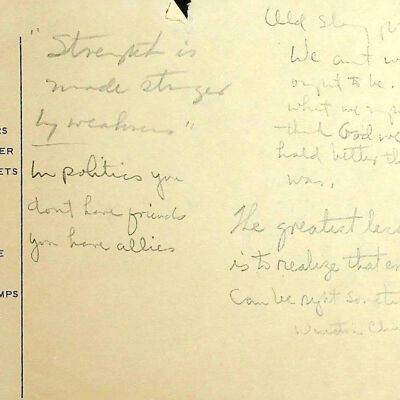 RS
ER
ETS
E
MPS
"Strength is
made stronger
by weakness"
In politics you
dont have friends
you have allies
Old slang pr
We ain't w
ought to be.
what we
think God we
hold better th
was.
The greatest less
is to realize that en
Can be right someti
Winston Chu